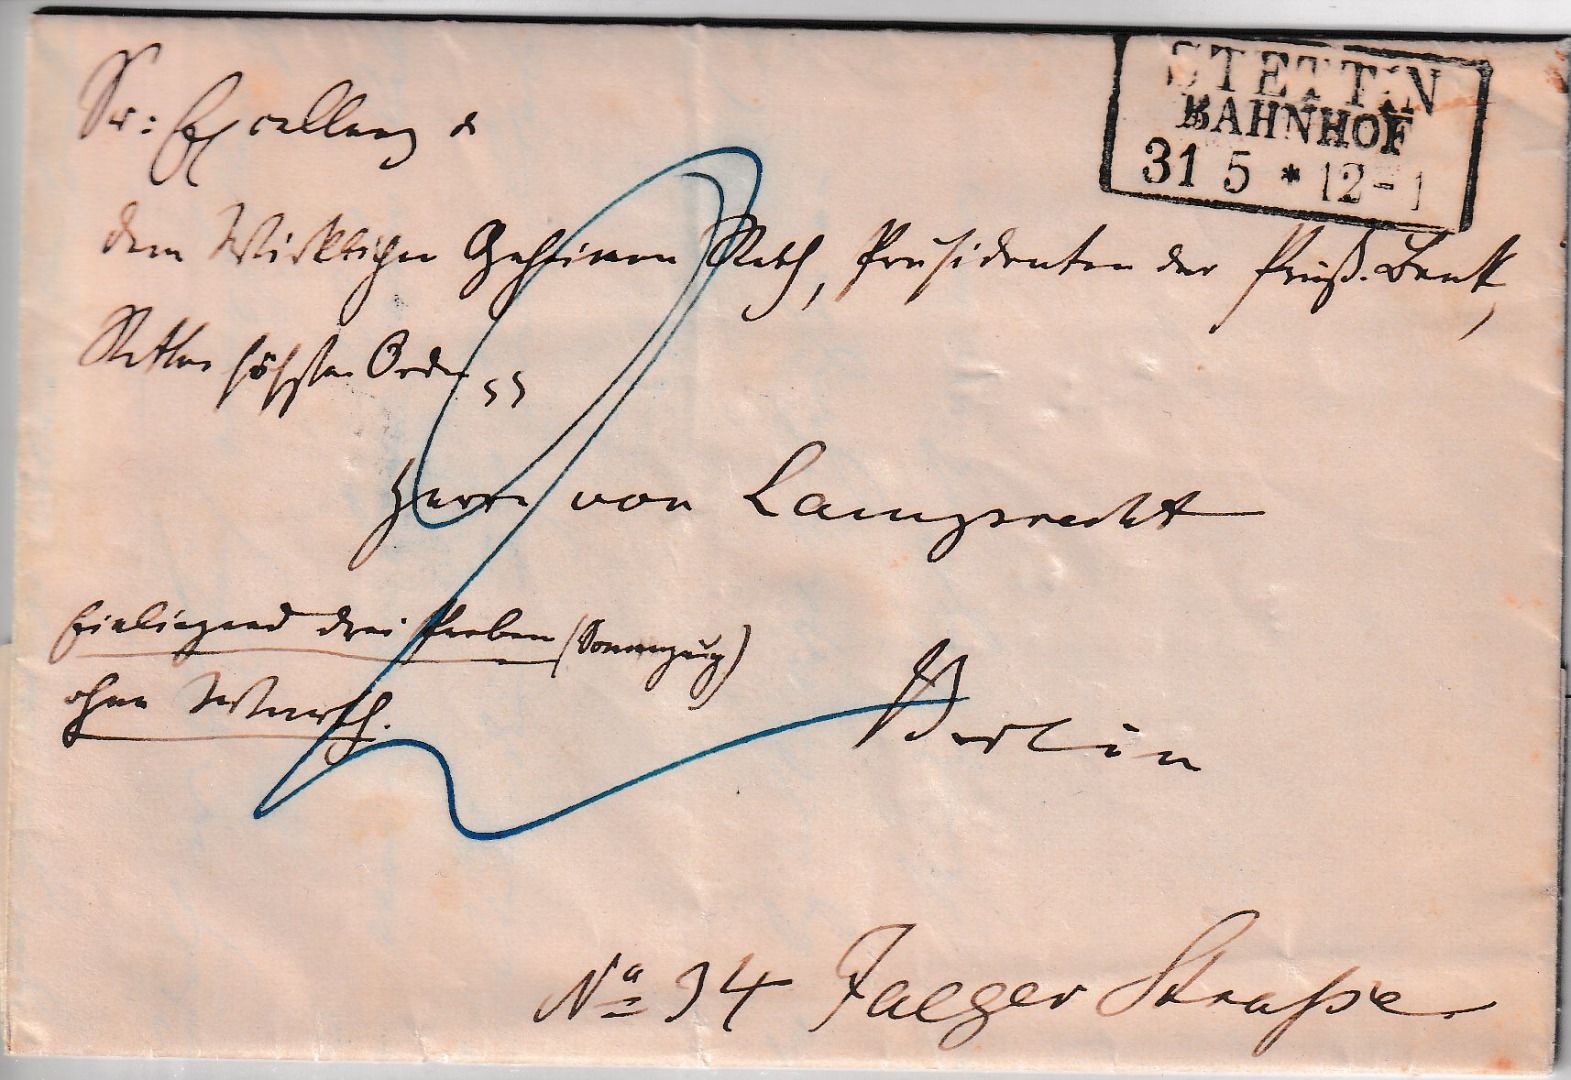 STETTIN
BAHNHOF
31 5 * 12-1
Sr: Excellenz
dem Wirklichen Geheimen Rath, Präsidenten der Preuß. Bank,
Ritter höchster Orden
Herrn von Lamprecht
Einliegend drei Proben
ohne Werth.
Berlin
No 34 Jaeger Straße.